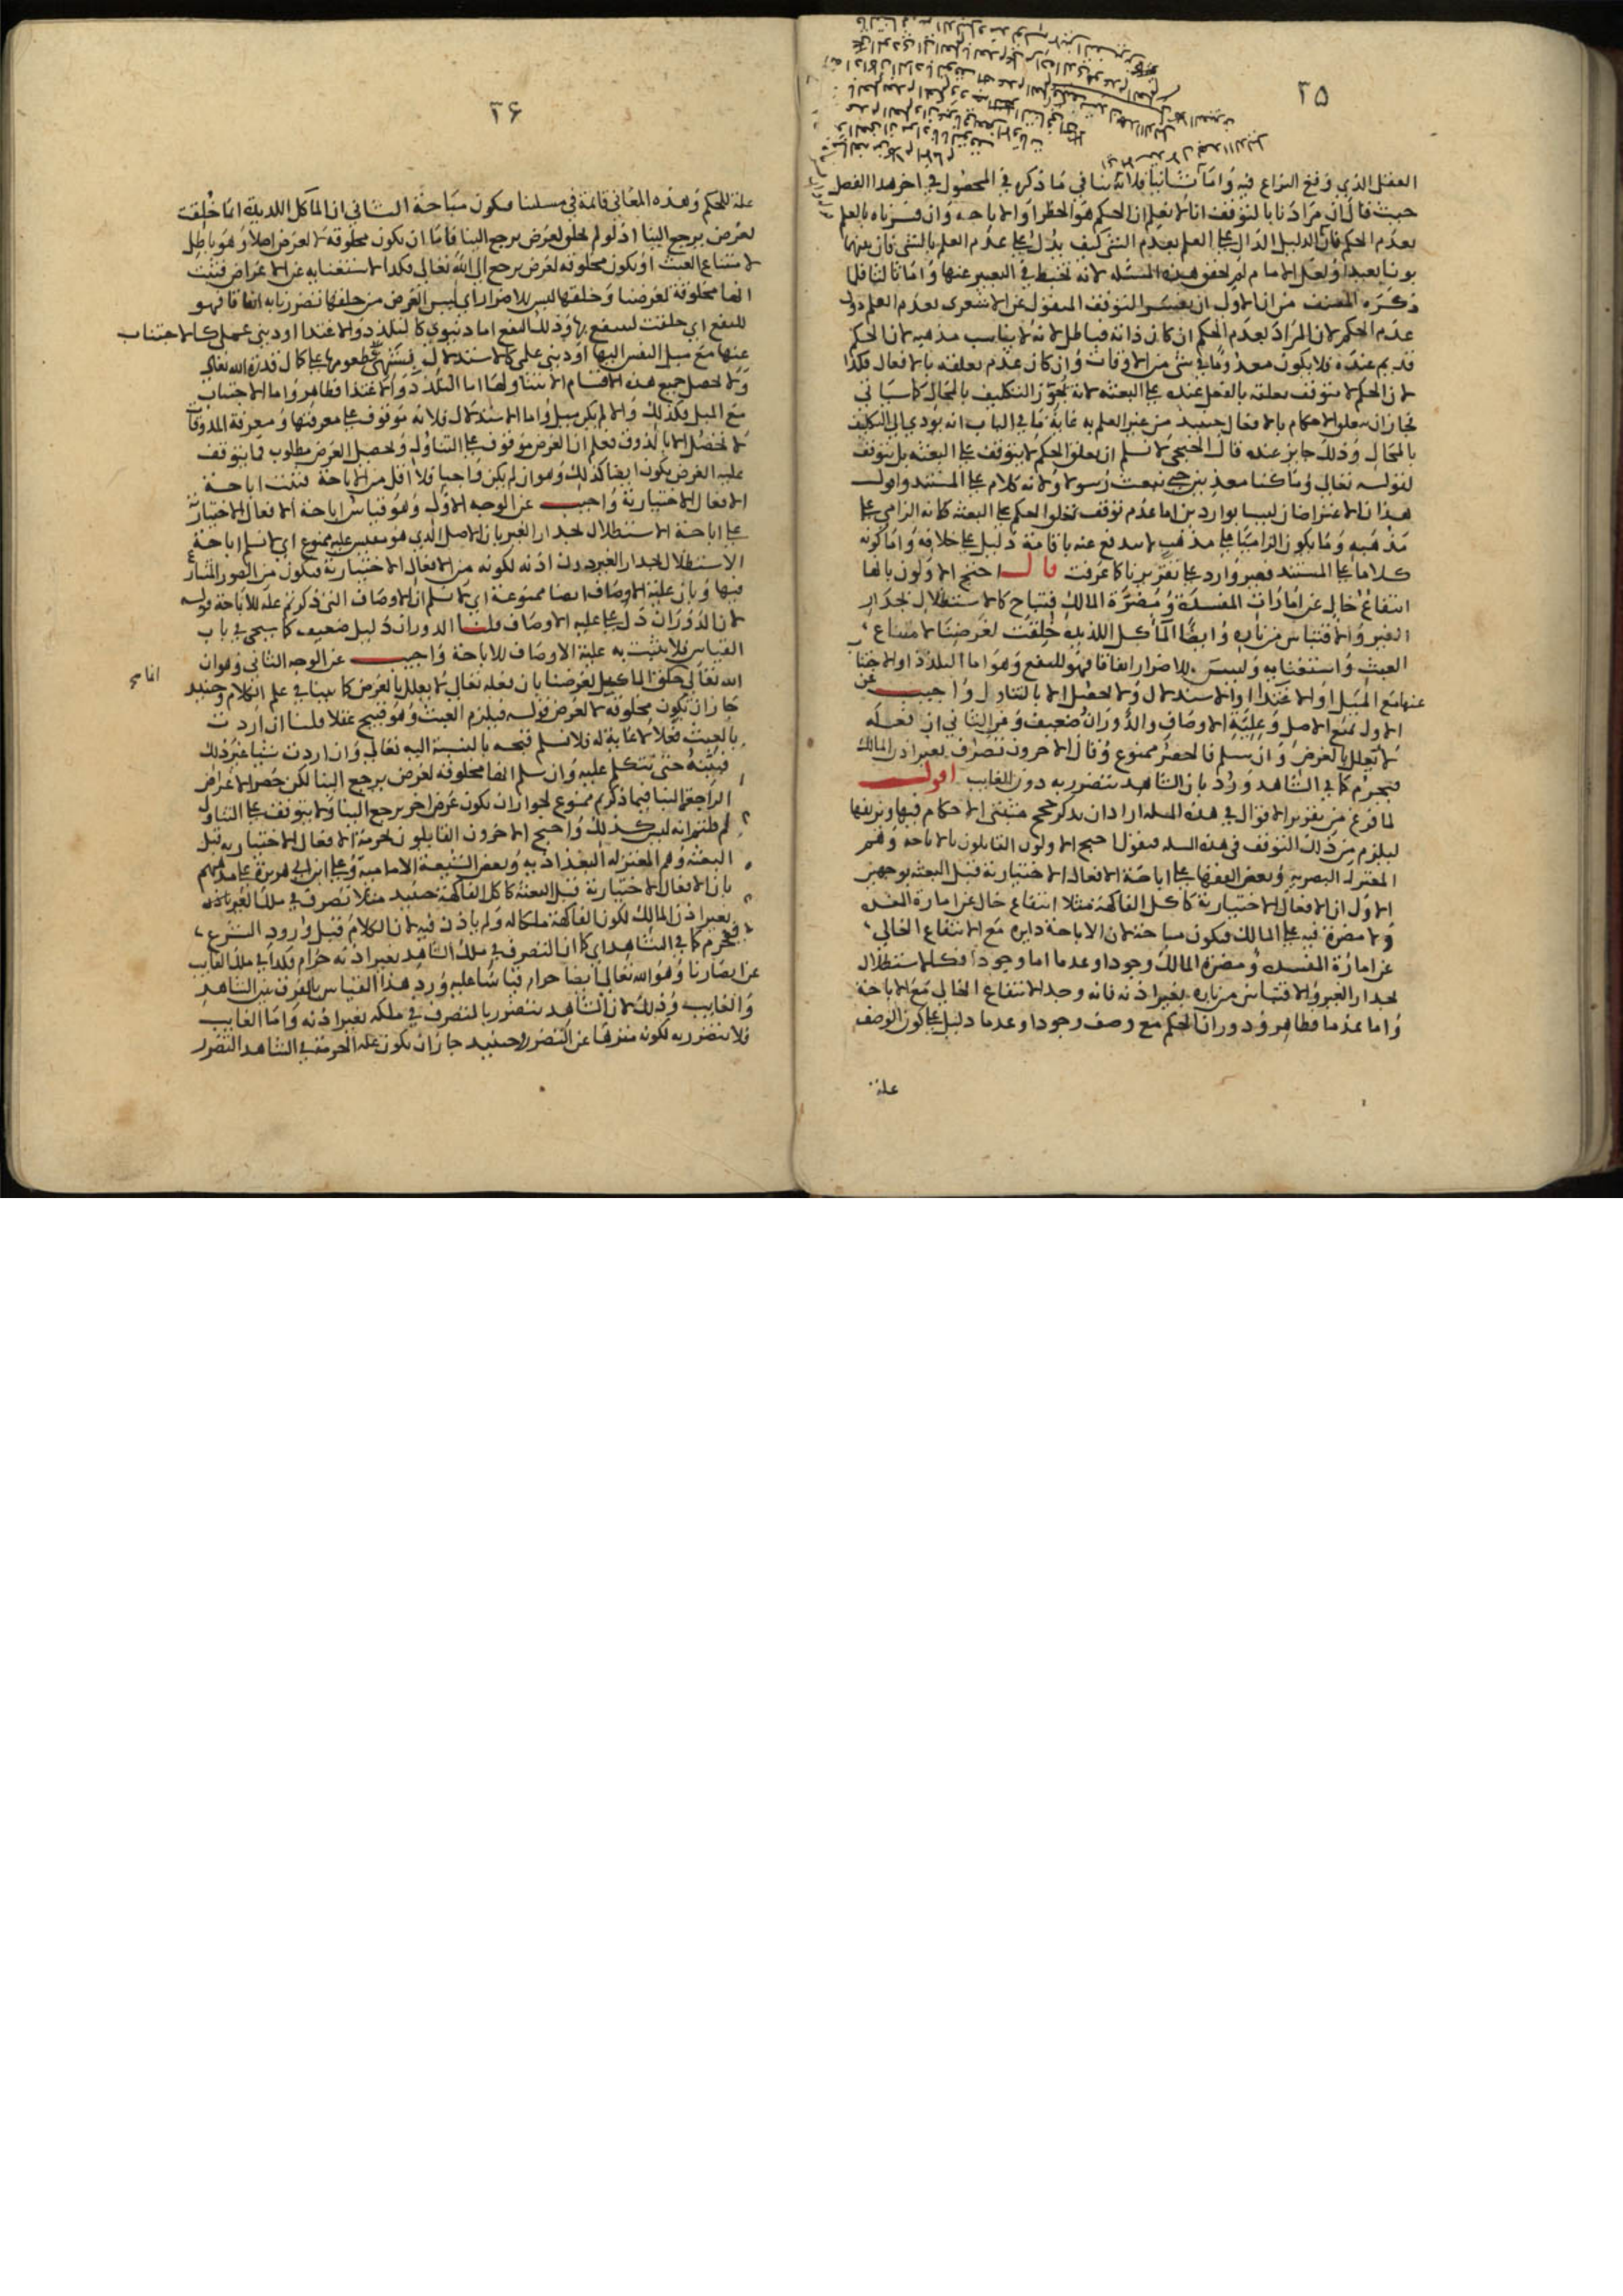 ٣٥
الفعل الذي وقع النزاع فيه واما ثانيا فلانه ينافي ما ذكره في المحصول في اخر هذا الفصل
حيث قال ان مرادنا بالتوقف انا لا نعلم ان الحكم هو الحظر او الاباحة وان فسرناه بالعلم
بعدم الحكم فان الدليل الدال على العلم بعدم الشئ كيف يدل على عدم العلم بالشئ فان بينهما
بونا بعيدا ولعل الامام لم يحقق هذه المسئلة لانه تخبط في التعبير عنها واما ثالثا فلما
ذكره المصنف من ان الاولى ان يفسر التوقف المنقول عن الاشعري بعدم العلم دون
عدم الحكم لان المراد بعدم الحكم ان كان ذاته فباطل لانه لا يناسب مذهبه لان الحكم
قديم عنده فلا يكون معدوما في شئ من الاوقات وان كان عدم تعلقه بالافعال فكذا
لان الحكم لا يتوقف تعلقه بالفعل عنده على البعثة لانه يجوز التكليف بالمحال كما سياتي
فجاز ان يتعلق الاحكام بالافعال حينئذ من غير العلم به غاية ما في الباب انه يؤدي الى التكليف
بالمحال وذلك جايز عنده قال الخنجي لا نسلم ان تعلق الحكم لا يتوقف على البعثة بل يتوقف
لقوله تعالى وما كنا معذبين حتى نبعث رسولا ولانه كلام على المستند واقول
هذان الاعتراضان ليسا بواردين اما عدم توقف تعلق الحكم على البعثة كانه الزامي على
مذهبه وما يكون الزاميا على مذهب لا يندفع عنه باقامة دليل على خلافه واما كونه
كلاما على المستند فغير وارد على تقريرنا كما عرفت قال احتج الاولون بانها
انتفاع خال عن امارات المفسدة ومضرة المالك فتباح كالاستظلال بجدار
الغير والاقتباس من ناره وايضا المآكل اللذيذة خلقت لغرضنا لامتناع
العبث واستغنائه وليس للاضرار اتفاقا فهو للنفع وهو اما التلذذ او الاجتناب
عنها مع الميل او الاغتذا او الاستدلال ولا يحصل الا بالتناول واجيب عن
الاول بمنع الاصل وعلية الاوصاف والدوران ضعيف وعن الثاني ان فعله
لا يعلل بالغرض وان سلم فالحصر ممنوع وقال الاخرون تصرف بغير اذن المالك
فيحرم كما في الشاهد ورد بان الشاهد يتضرر به دون الغايب اقول
لما فرغ من تقرير الاقوال في هذه المسئلة اراد ان يذكر حجج مثبتي الاحكام فيها وتزييفها
ليلزم من ذلك التوقف في هذه المسئلة فيقول احتج الاولون القايلون بالاباحة وهم
المعتزلة البصرية وبعض الفقها على اباحة الافعال الاختيارية قبل البعثة بوجهين
الاول ان الافعال الاختيارية كاكل الفاكهة مثلا انتفاع خال عن امارة المفسدة
ولا مضرة فيه على المالك فيكون مباحة لان الاباحة دايرة مع الانتفاع الخالي
عن امارة المفسدة ومضرة المالك وجودا وعدما اما وجودا فكالاستظلال
بجدار الغير والاقتباس من ناره بغير اذنه فانه وجد الانتفاع الخالي مع الاباحة
واما عدما فظاهر ودوران الحكم مع وصف وجودا وعدما دليل على كون الوصف
علة
٣۶
علة للحكم وهذه المعاني قايمة في مسئلتنا فيكون مباحة الثاني ان المآكل اللذيذة انما خلقت
لغرض يرجع الينا اذ لو لم يخلق لغرض يرجع الينا فاما ان يكون مخلوقة لا لغرض اصلا وهو باطل
لامتناع العبث او يكون مخلوقة لغرض يرجع الى الله تعالى فكذا لاستغنائه عن الاغراض فثبت
انها مخلوقة لغرضنا وخلقها ليس للاضرار اي ليس الغرض من خلقها تضررنا به اتفاقا فهو
للنفع اي خلقت لننتفع بها وذلك النفع اما دنيوي كالتلذذ والاغتذا او ديني عملي كالاجتناب
عنها مع ميل النفس اليها او ديني علمي كالاستدلال بتشهي مطعومها على كمال قدرة الله تعالى
ولا يحصل جميع هذه الاقسام الا بتناولها اما التلذذ والاغتذا فظاهر واما الاجتناب
مع الميل فكذلك والا لم يكن ميل واما الاستدلال فلانه موقوف على معرفتها ومعرفة المذوقات
لا تحصل الا بالذوق فعلم ان الغرض موقوف على التناول وتحصيل الغرض مطلوب فما يتوقف
عليه الغرض يكون ايضا كذلك وهو ان لم يكن واجبا فلا اقل من الاباحة فثبت اباحة
الافعال الاختيارية واجيب عن الوجه الاول وهو قياس اباحة الافعال الاختيارية
على اباحة الاستظلال بجدار الغير بان الاصل الذي هو مقيس عليه ممنوع اي لا نسلم اباحة
الاستظلال بجدار الغير بدون اذنه لكونه من الافعال الاختيارية فيكون من الصور المتنازع
فيها وبان علية الاوصاف ايضا ممنوعة اي لا نسلم ان الاوصاف التي ذكرتم علة للاباحة قوله
لان الدوران دل على علية الاوصاف قلنا الدوران دليل ضعيف كما سيجي في باب
القياس فلا يثبت به علية الاوصاف للاباحة واجيب عن الوجه الثاني وهو ان
الله تعالى خلق المآكل لغرضنا بان فعله تعالى لا يعلل بالغرض كما بينا في علم الكلام وحينئذ
جاز ان يكون مخلوقة لا لغرض قوله فيلزم العبث وهو قبيح عقلا قلنا ان اردت
بالعبث فعلا لا غاية له فلا نسلم قبحه بالنسبة اليه تعالى وان اردت شيئا غير ذلك
فبينه حتى نتكلم عليه وان سلم انها مخلوقة لغرض يرجع الينا لكن حصر الاغراض
الراجعة الينا فيما ذكرتم ممنوع لجواز ان يكون غرض اخر يرجع الينا ولا يتوقف على التناول
لم قلتم انه ليس كذلك واحتج الاخرون القايلون بحرمة الافعال الاختيارية قبل
البعثة وهم المعتزلة البغداذية وبعض الشيعة الامامية وعلي ابن ابي هريرة على مذهبهم
بان الافعال الاختيارية قبل البعثة كاكل الفاكهة حينئذ مثلا تصرف في ملك الغير باذنه
بغير اذن المالك لكون الفاكهة ملكا له ولم ياذن فيه لان الكلام قبل ورود الشرع
فيحرم كما في الشاهد اي كما ان التصرف في ملك الشاهد بغير اذنه حرام فكذا في ملك الغايب
عن ابصارنا وهو الله تعالى ايضا حرام قياسا عليه ورد هذا القياس بالفرق بين الشاهد
والغايب وذلك لان الشاهد يتضرر بالتصرف في ملكه بغير اذنه واما الغايب
فلا يتضرر به لكونه منزها عن التضرر وحينئذ جاز ان يكون علة الحرمة في الشاهد التضرر